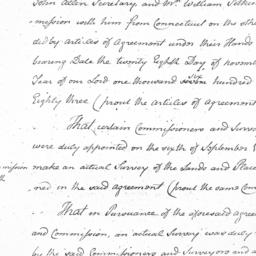 John Allen Secretary and Mr. William Pitkin
mission with him from Connecticut on the othe
ded by articles of Agreement under their Hands
bearing Date the twenty Eighth Day of novem
Year of our Lord one thousand six hundred
Eighty three (prout the articles of agreement
That certain Commissioners and Surv
were duly appointed on the sixth of September
make an actual Survey of the Lands and Place
mission
ned in the said agreement (prout the same Com
That in Pursuance of the aforesaid agree
and Commission, an actual Survey was duly
by the said Commissioners and Surveyors and a